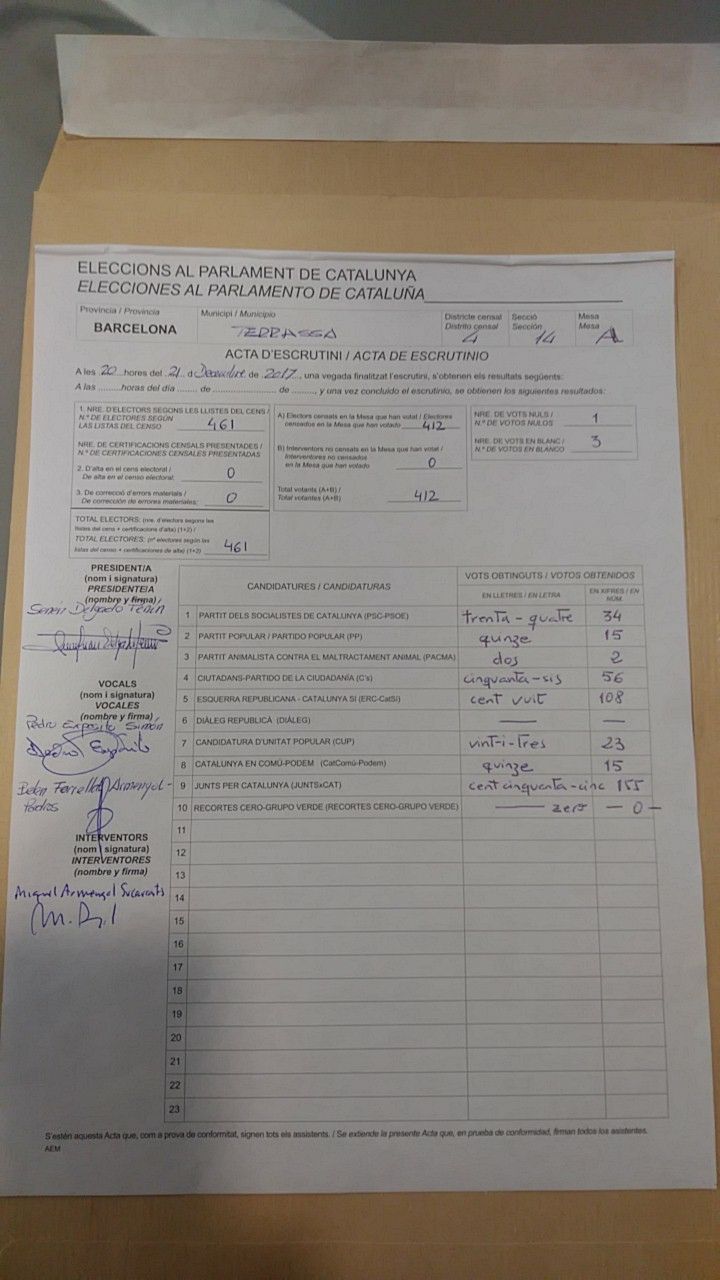 ELECCIONS AL PARLAMENT DE CATALUNYA
ELECCIONES AL PARLAMENTO DE CATALUÑA
Província / Provincia
BARCELONA
Municipi / Municipio
TERRASSA
Districte censal
Distrito censal
4
Secció
Sección
14
Mesa
Mesa
A
ACTA D'ESCRUTINI / ACTA DE ESCRUTINIO
A les 20 hores del 21 d Desembre de 2017, una vegada finalitzat l'escrutini, s'obtenen els resultats següents:
A las ........horas del día ........ de .................... de ........, y una vez concluido el escrutinio, se obtienen los siguientes resultados:
1. NRE. D'ELECTORS SEGONS LES LLISTES DEL CENS /
N.º DE ELECTORES SEGÚN
LAS LISTAS DEL CENSO 461
NRE. DE CERTIFICACIONS CENSALS PRESENTADES /
N.º DE CERTIFICACIONES CENSALES PRESENTADAS
2. D'alta en el cens electoral /
De alta en el censo electoral: 0
3. De correcció d'errors materials /
De corrección de errores materiales: 0
TOTAL ELECTORS: (nre. d'electors segons les
llistes del cens + certificacions d'alta) (1+2) /
TOTAL ELECTORES: (nº electores según las
listas del censo + certificaciones de alta) (1+2) 461
A) Electors censats en la Mesa que han votat / Electores
censados en la Mesa que han votado 412
B) Interventors no censats en la Mesa que han votat /
Interventores no censados
en la Mesa que han votado 0
Total votants (A+B) /
Total votantes (A+B) 412
NRE. DE VOTS NULS /
N.º DE VOTOS NULOS 1
NRE. DE VOTS EN BLANC /
N.º DE VOTOS EN BLANCO 3
PRESIDENT/A
(nom i signatura)
PRESIDENTE/A
(nombre y firma)
Delgado
VOCALS
(nom i signatura)
VOCALES
(nombre y firma)
Pedro Expósito Simón
Pedro Expósito
Belén Armengol-
INTERVENTORS
(nom i signatura)
INTERVENTORES
(nombre y firma)
Miquel Armengol
CANDIDATURES / CANDIDATURAS
VOTS OBTINGUTS / VOTOS OBTENIDOS
EN LLETRES / EN LETRA
EN XIFRES / EN NÚM.
1 PARTIT DELS SOCIALISTES DE CATALUNYA (PSC-PSOE) trenta-quatre 34
2 PARTIT POPULAR / PARTIDO POPULAR (PP) quinze 15
3 PARTIT ANIMALISTA CONTRA EL MALTRACTAMENT ANIMAL (PACMA) dos 2
4 CIUTADANS-PARTIDO DE LA CIUDADANÍA (C's) cinquanta-sis 56
5 ESQUERRA REPUBLICANA - CATALUNYA SÍ (ERC-CatSí) cent vuit 108
6 DIÀLEG REPUBLICÀ (DIÀLEG) — —
7 CANDIDATURA D'UNITAT POPULAR (CUP) vint-i-tres 23
8 CATALUNYA EN COMÚ-PODEM (CatComú-Podem) quinze 15
9 JUNTS PER CATALUNYA (JUNTSxCAT) cent cinquanta-cinc 155
10 RECORTES CERO-GRUPO VERDE (RECORTES CERO-GRUPO VERDE) — zero — 0 —
11
12
13
14
15
16
17
18
19
20
21
22
23
S'estén aquesta Acta que, com a prova de conformitat, signen tots els assistents. / Se extiende la presente Acta que, en prueba de conformidad, firman todos los asistentes.
AEM